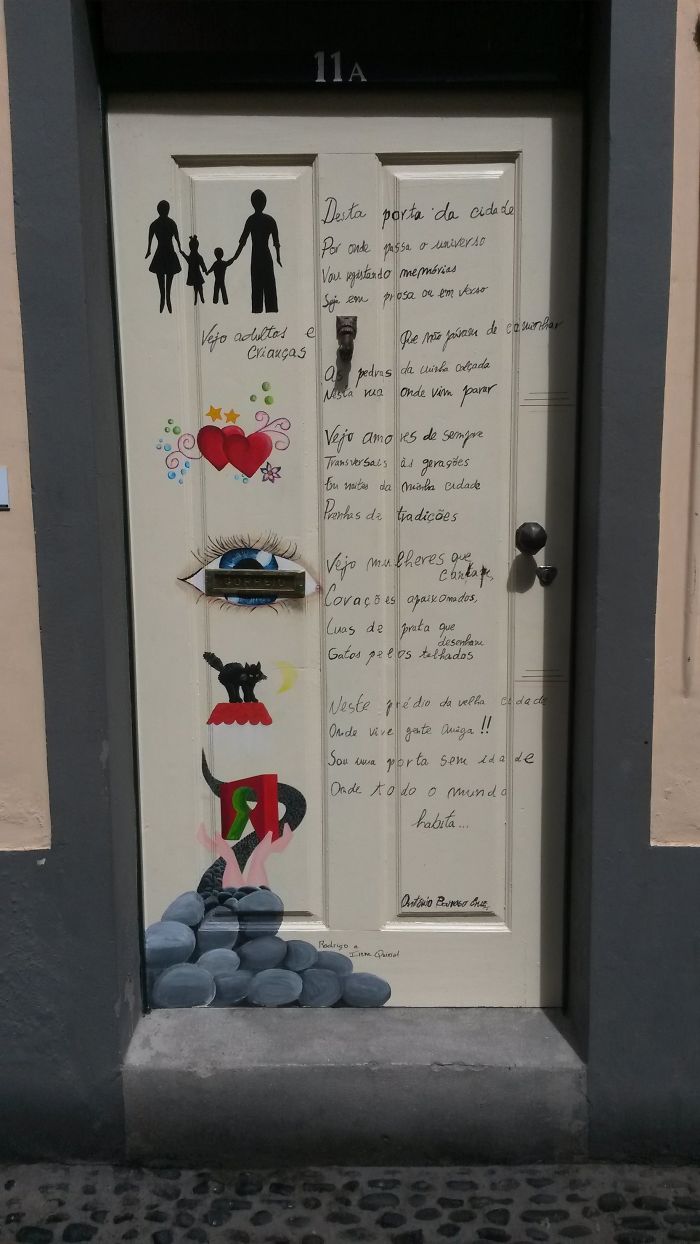 11A
Desta porta da cidade
Por onde passa o universo
Vou registando memórias
Seja em prosa ou em verso
Vejo adultos e
crianças
Que não páram de caminhar
As pedras da minha calçada
Nesta rua onde vim parar
Vejo amores de sempre
Transversais às gerações
Em noites da minha cidade
Prenhas de tradições
CORREIO
Vejo mulheres que
cantam,
Corações apaixonados,
Luas de prata que
desenham
Gatos pelos telhados
Neste prédio da velha cidade
Onde vive gente amiga!!
Sou uma porta sem idade
Onde todo o mundo
habita...
António Barroso Cruz
Rodrigo e